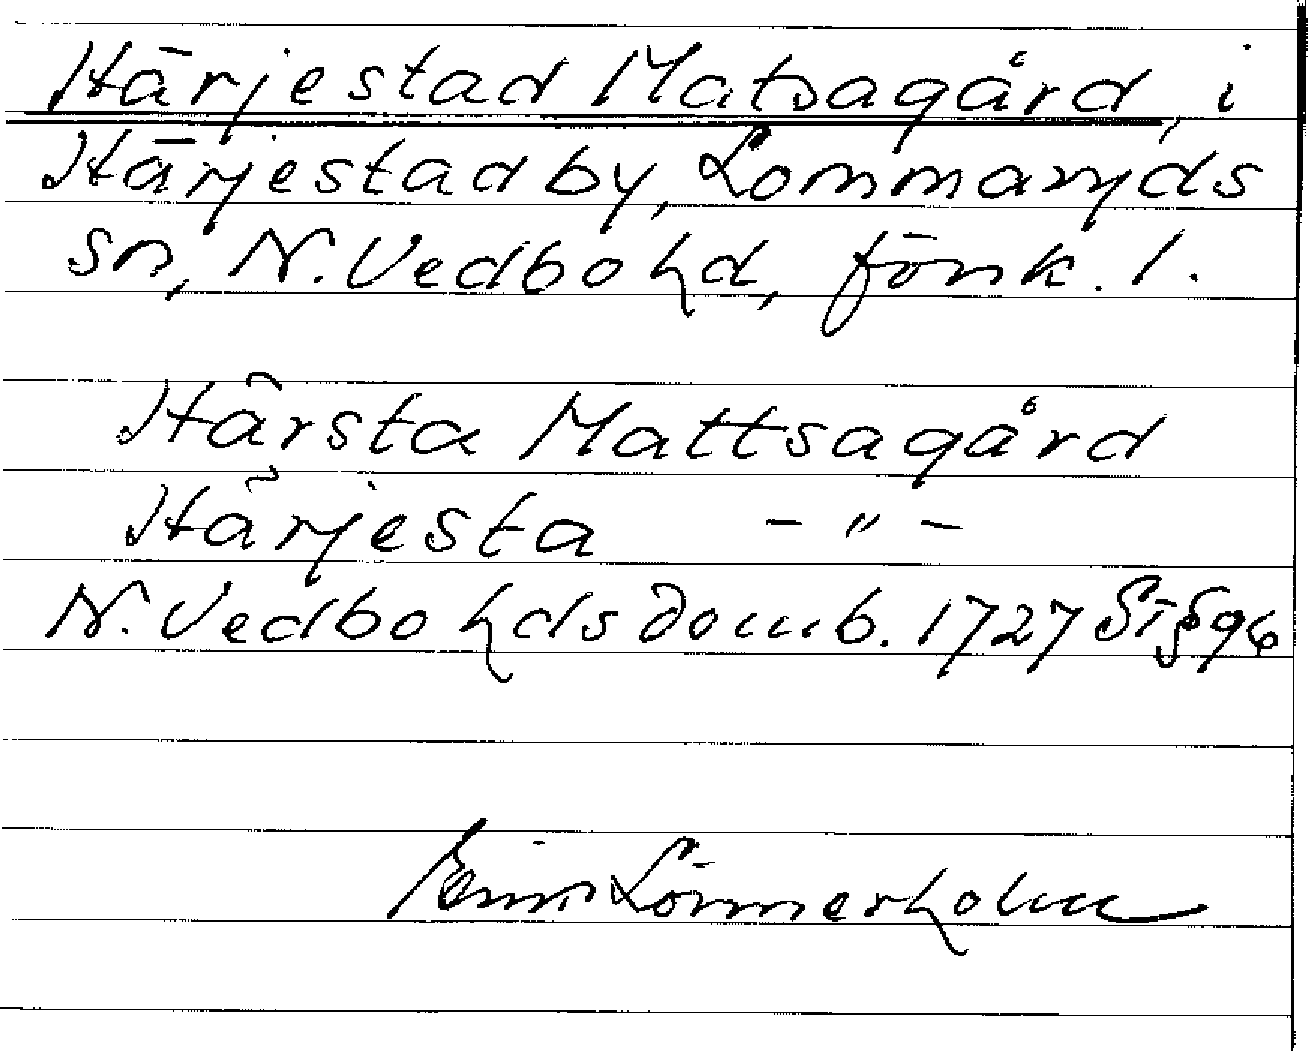 Härjestad Matsagård, i
Härjestad by, Lommaryds
sn, N. Vedbo hd, Jönk. l.
Härsta Mattsagård
Härjesta -"-
N. Vedbo hds Domb. 1727 St § 96
Einar Lönnerholm